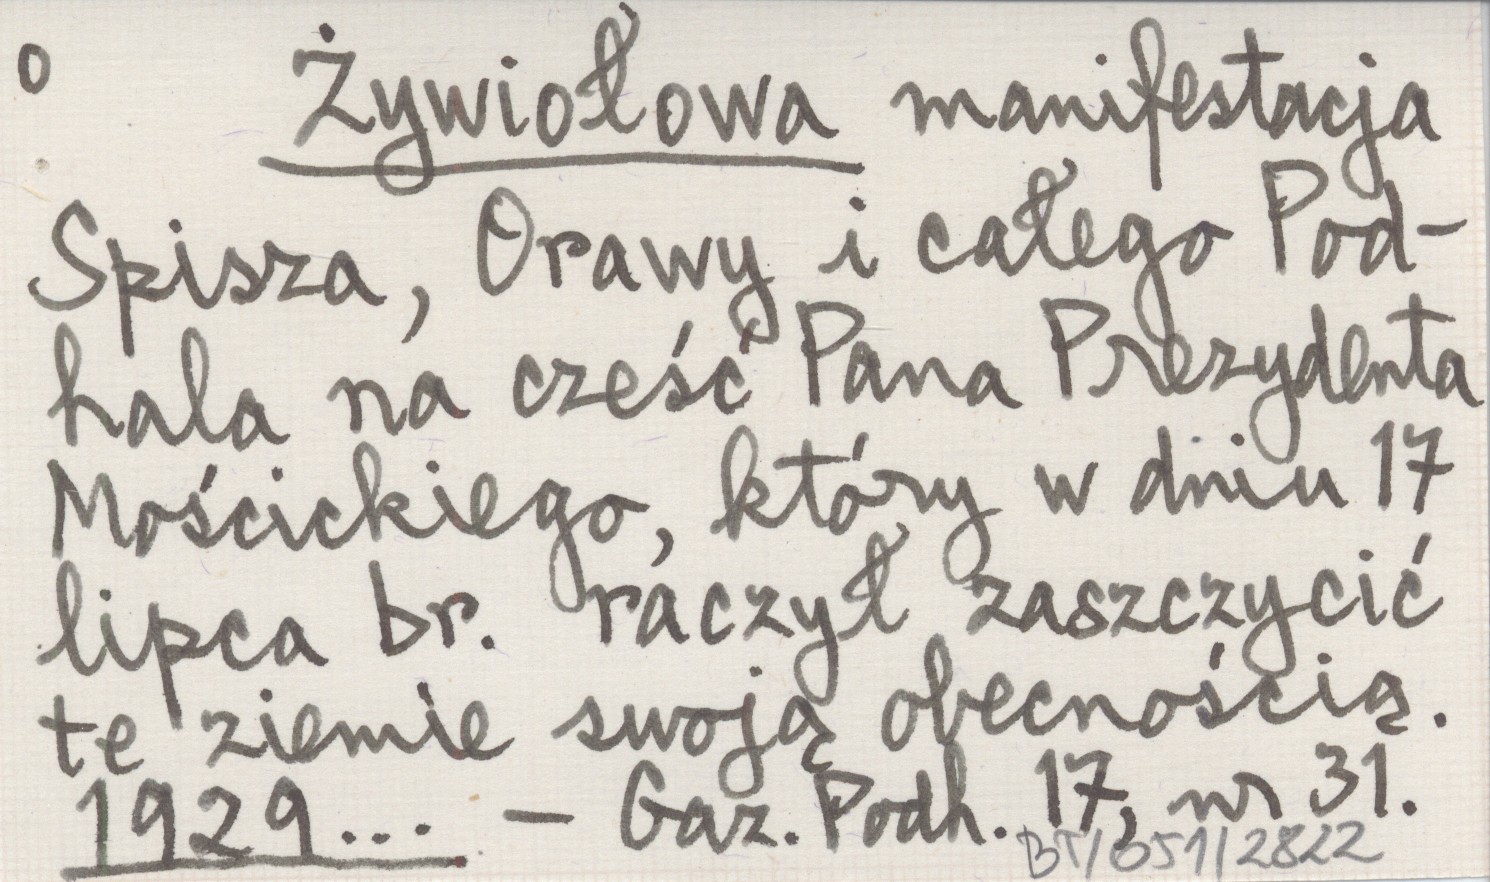 o Żywiołowa manifestacja
Spisza, Orawy i całego Pod-
hala na cześć Pana Prezydenta
Mościckiego, który w dniu 17
lipca br. raczył zaszczycić
te ziemie swoją obecnością.
1929... – Gaz. Podh. 17, nr 31.
BT/651/2822